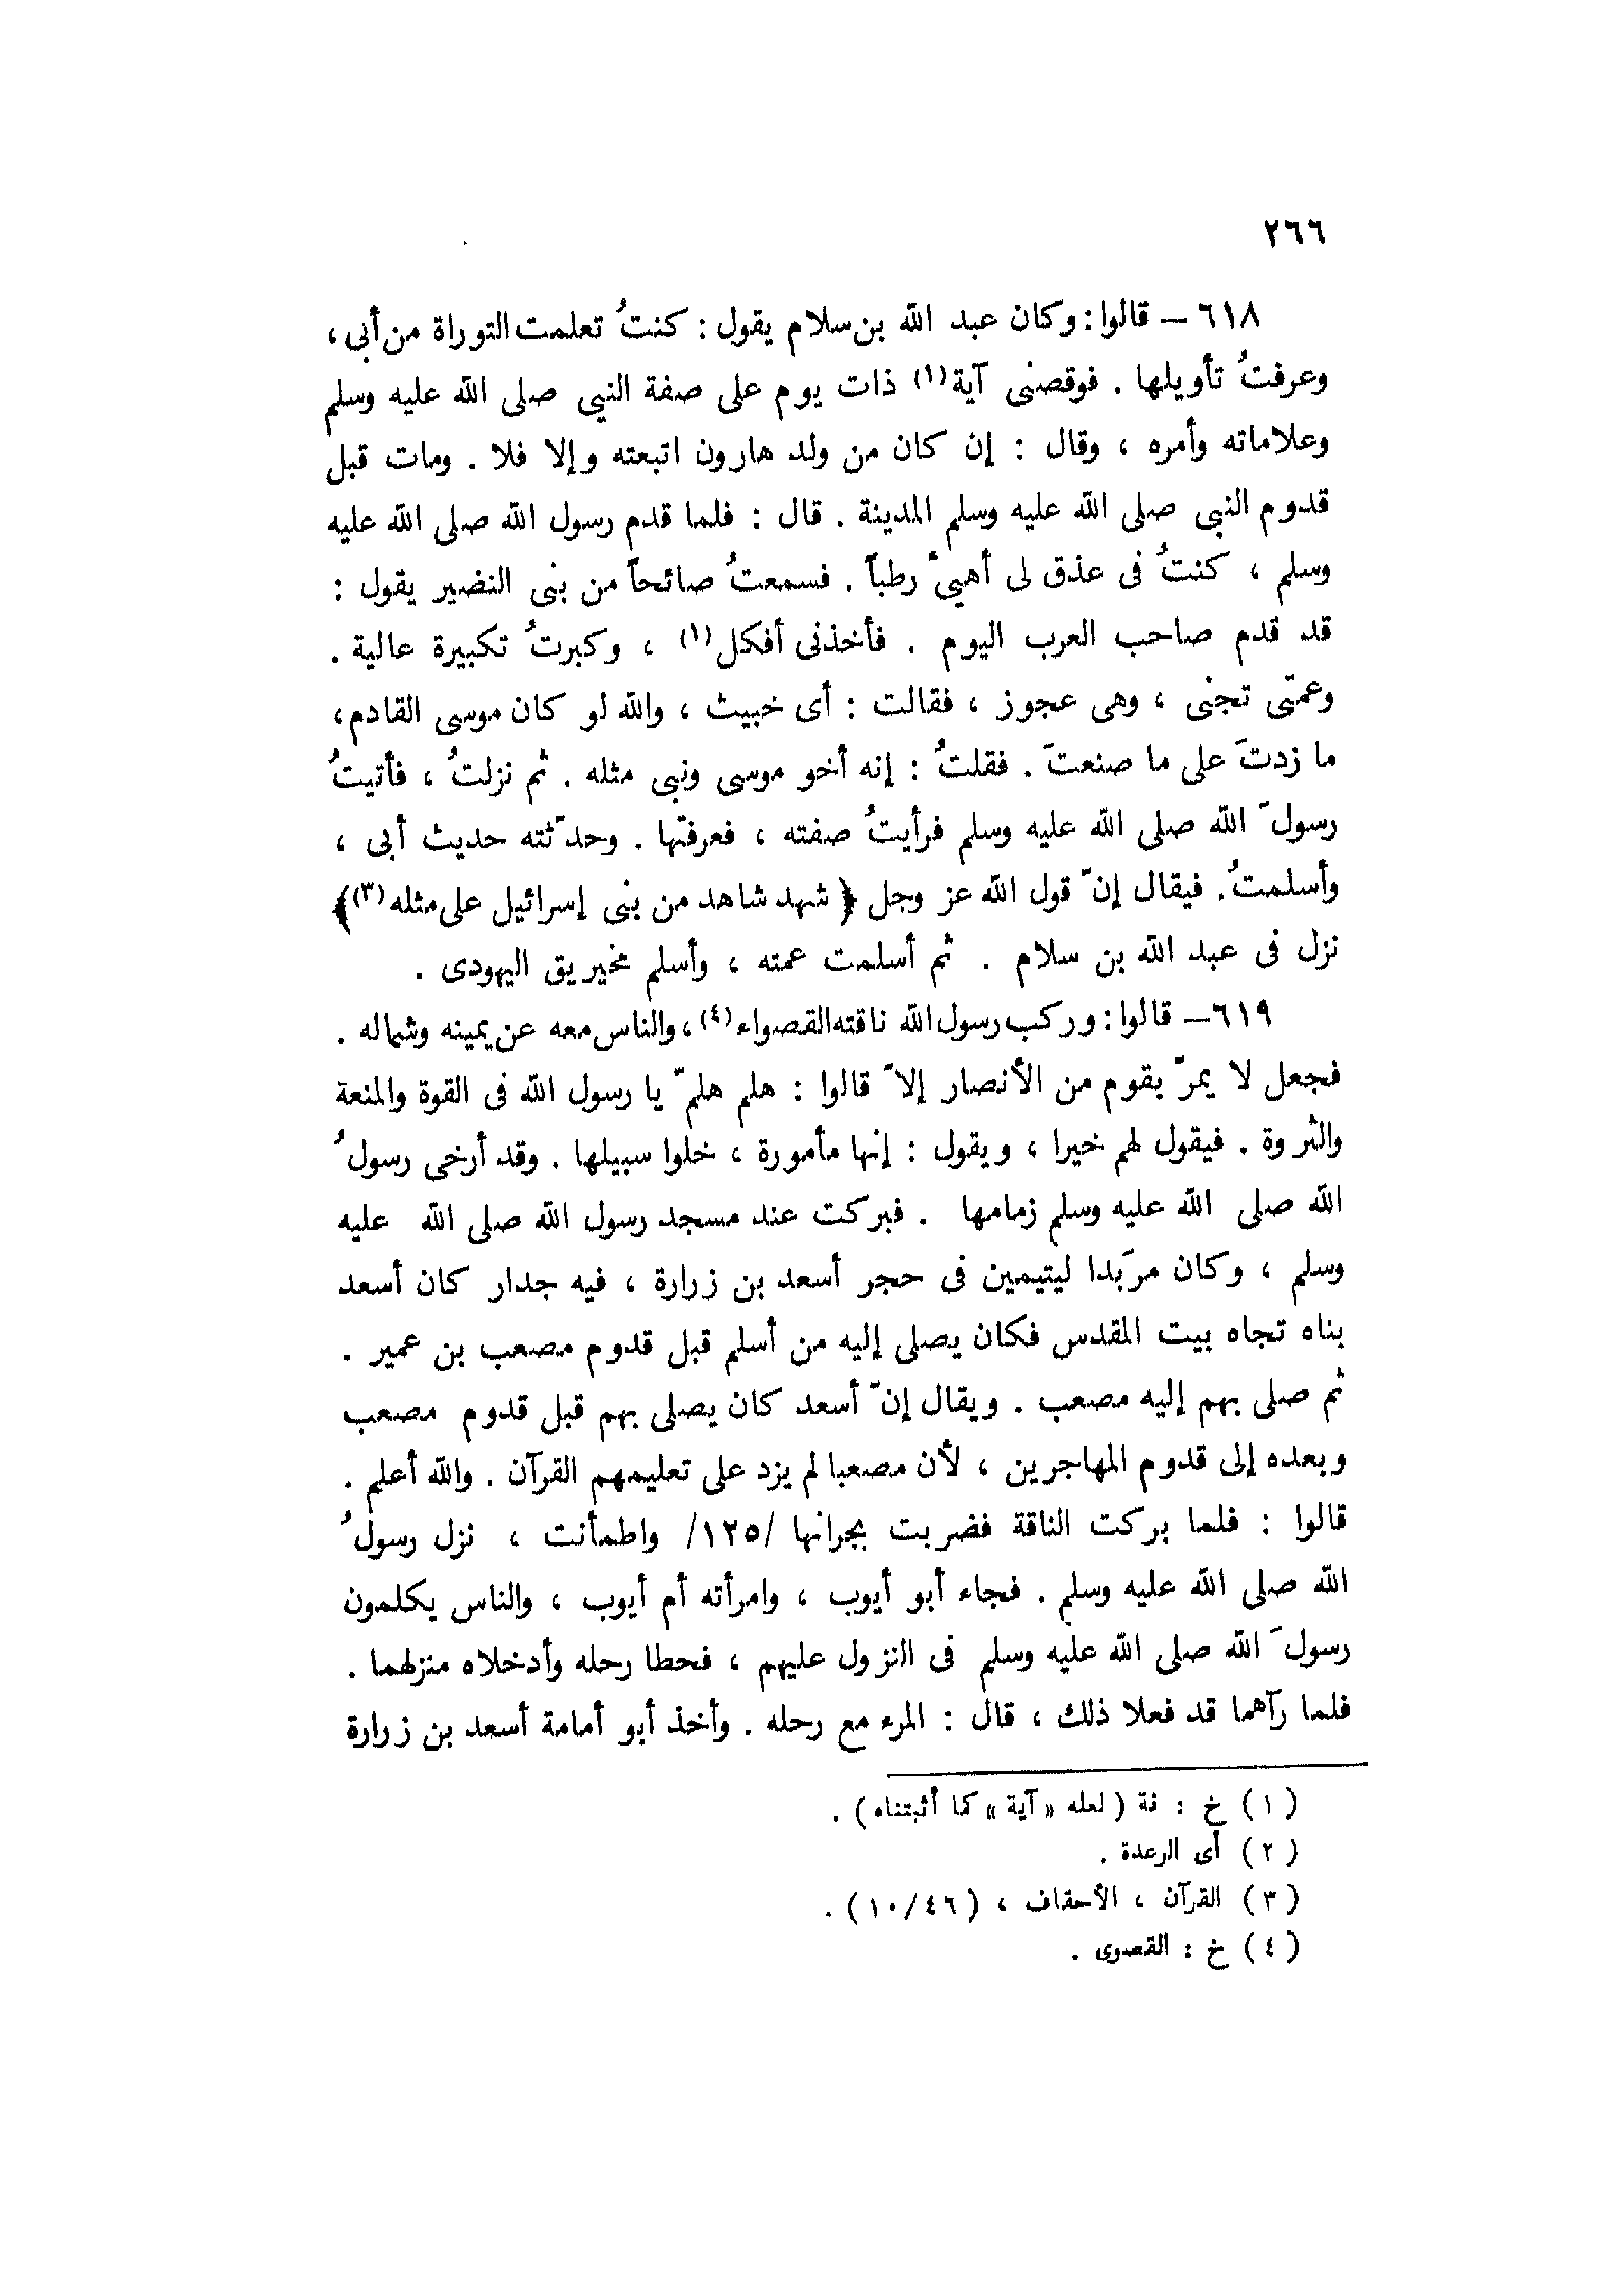 ٢٦٦
٦١٨ – قالوا : وكان عبد الله بن سلام يقول : كنتُ تعلمت التوراة من أبى ،
وعرفتُ تأويلها . فوقصنى آية(١) ذات يوم على صفة النبى صلى الله عليه وسلم
وعلاماته وأمره ، وقال : إن كان من ولد هارون اتبعته وإلا فلا . ومات قبل
قدوم النبى صلى الله عليه وسلم المدينة . قال : فلما قدم رسول الله صلى الله عليه
وسلم ، كنتُ فى عذق لى أهيئُ رطباً . فسمعتُ صائحاً من بنى النضير يقول :
قد قدم صاحب العرب اليوم . فأخذنى أفكل(١) ، وكبرتُ تكبيرة عالية .
وعمتى تجنى ، وهى عجوز ، فقالت : أى خبيث ، والله لو كان موسى القادم ،
ما زدتَ على ما صنعتَ . فقلتُ : إنه أخو موسى ونبى مثله . ثم نزلتُ ، فأتيتُ
رسولَ الله صلى الله عليه وسلم فرأيتُ صفته ، فعرفتها . وحدّثته حديث أبى ،
وأسلمتُ . فيقال إنّ قول الله عز وجل ﴿ شهد شاهد من بنى إسرائيل على مثله(٣)﴾
نزل فى عبد الله بن سلام . ثم أسلمت عمته ، وأسلم مخيريق اليهودى .
٦١٩ – قالوا : وركب رسول الله ناقته القصواء(٤) ، والناس معه عن يمينه وشماله .
فجعل لا يمرّ بقوم من الأنصار إلاّ قالوا : هلم هلمّ يا رسول الله فى القوة والمنعة
والثروة . فيقول لهم خيرا ، ويقول : إنها مأمورة ، خلوا سبيلها . وقد أرخى رسولُ
الله صلى الله عليه وسلم زمامها . فبركت عند مسجد رسول الله صلى الله عليه
وسلم ، وكان مرَبدا ليتيمين فى حجر أسعد بن زرارة ، فيه جدار كان أسعد
بناه تجاه بيت المقدس فكان يصلى إليه من أسلم قبل قدوم مصعب بن عمير .
ثم صلى بهم إليه مصعب . ويقال إنّ أسعد كان يصلى بهم قبل قدوم مصعب
وبعده إلى قدوم المهاجرين ، لأن مصعبا لم يزد على تعليمهم القرآن . والله أعلم .
قالوا : فلما بركت الناقة فضربت بجرانها /١٢٥/ واطمأنت ، نزل رسولُ
الله صلى الله عليه وسلم . فجاء أبو أيوب ، وامرأته أم أيوب ، والناس يكلمون
رسولَ الله صلى الله عليه وسلم فى النزول عليهم ، فحطا رحله وأدخلاه منزلهما .
فلما رآهما قد فعلا ذلك ، قال : المرء مع رحله . وأخذ أبو أمامة أسعد بن زرارة
(١) خ : ئة (لعله «آية» كما أثبتناه) .
(٢) أى الرعدة .
(٣) القرآن ، الأحقاف ، (١٠/٤٦) .
(٤) خ : القصوى .